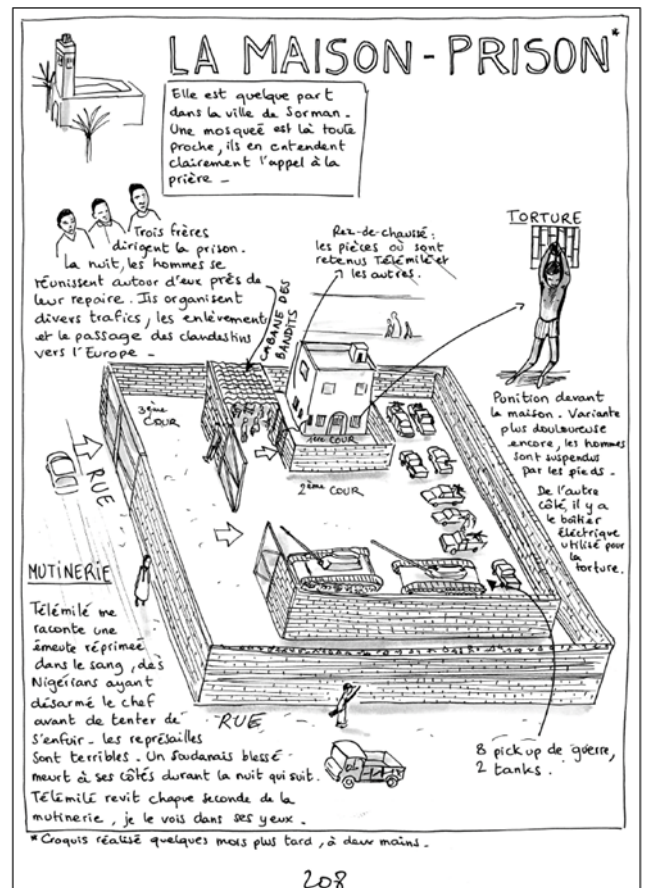 LA MAISON-PRISON*
Elle est quelque part
dans la ville de Sorman -
Une mosqueé est là toute
proche, ils en entendent
clairement l'appel à la
prière -
Trois frères
dirigent la prison.
La nuit, les hommes se
réunissent autour d'eux près de
leur repaire. Ils organisent
divers trafics, les enlèvements
et le passage des clandestins
vers l'Europe -
Rez-de-chaussé :
les pièces où sont
retenus Télémilé et
les autres.
TORTURE
CABANE DES
BANDITS
3ème
COUR
1ère COUR
2ème COUR
RUE
Punition devant
la maison. Variante
plus douloureuse
encore, les hommes
sont suspendus
par les pieds -
De l'autre
côté, il y a
le boîtier
éléctrique
utilisé pour
la
torture.
MUTINERIE
Télémilé me
raconte une
émeute réprimeé
dans le sang, des
Nigérians ayant
désarmé le chef
avant de tenter de
s'enfuir - les représailles
sont terribles. Un Soudanais blessé
meurt à ses côtés durant la nuit qui suit.
Télémilé revit chaque seconde de la
mutinerie, je le vois dans ses yeux.
RUE
8 pick up de guerre,
2 tanks.
* Croquis réalisé quelques mois plus tard, à deux mains.
208